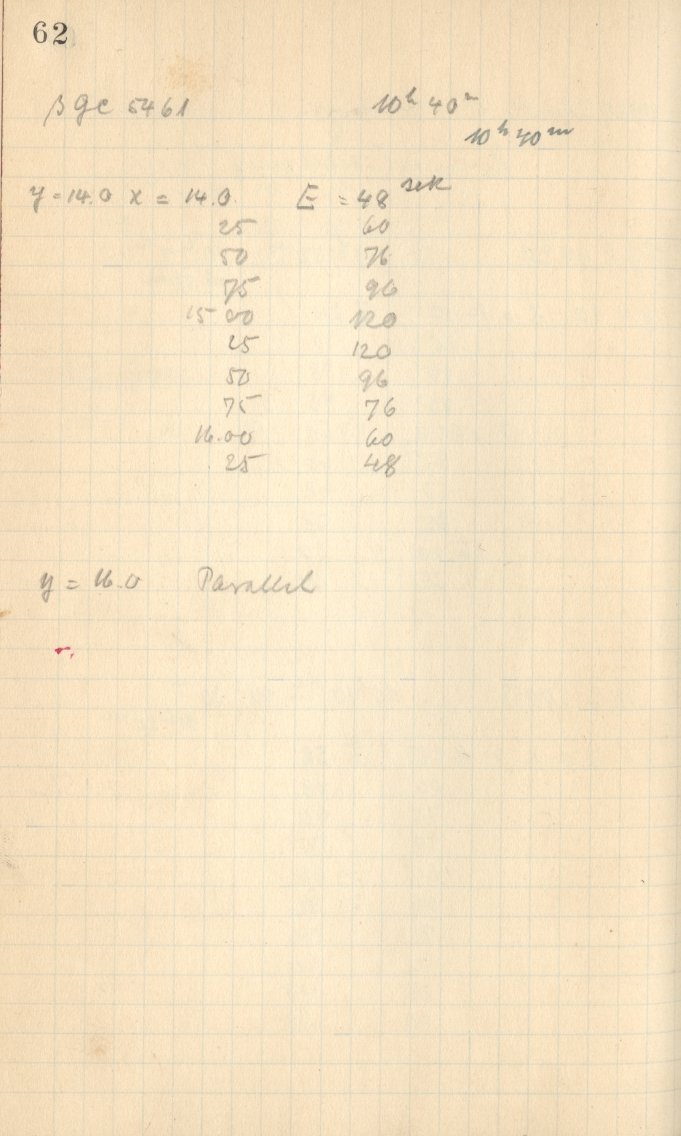 62
β gc 5461 10h 40m
10h 40m
y = 14.0 x = 14.0 E = 48 sek
25 60
50 76
75 96
15 00 120
25 120
50 96
75 76
16.00 60
25 48
y = 16.0 Parallel